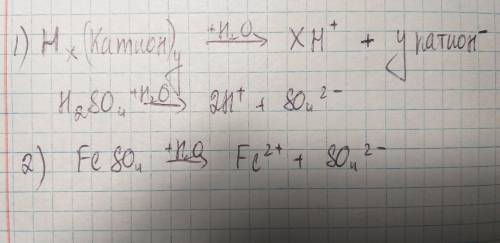 1) Hₓ(Катион)ᵧ +H₂O→ XH⁺ + y катион⁻
H₂SO₄ +H₂O→ 2H⁺ + SO₄²⁻
2) FeSO₄ +H₂O→ Fe²⁺ + SO₄²⁻